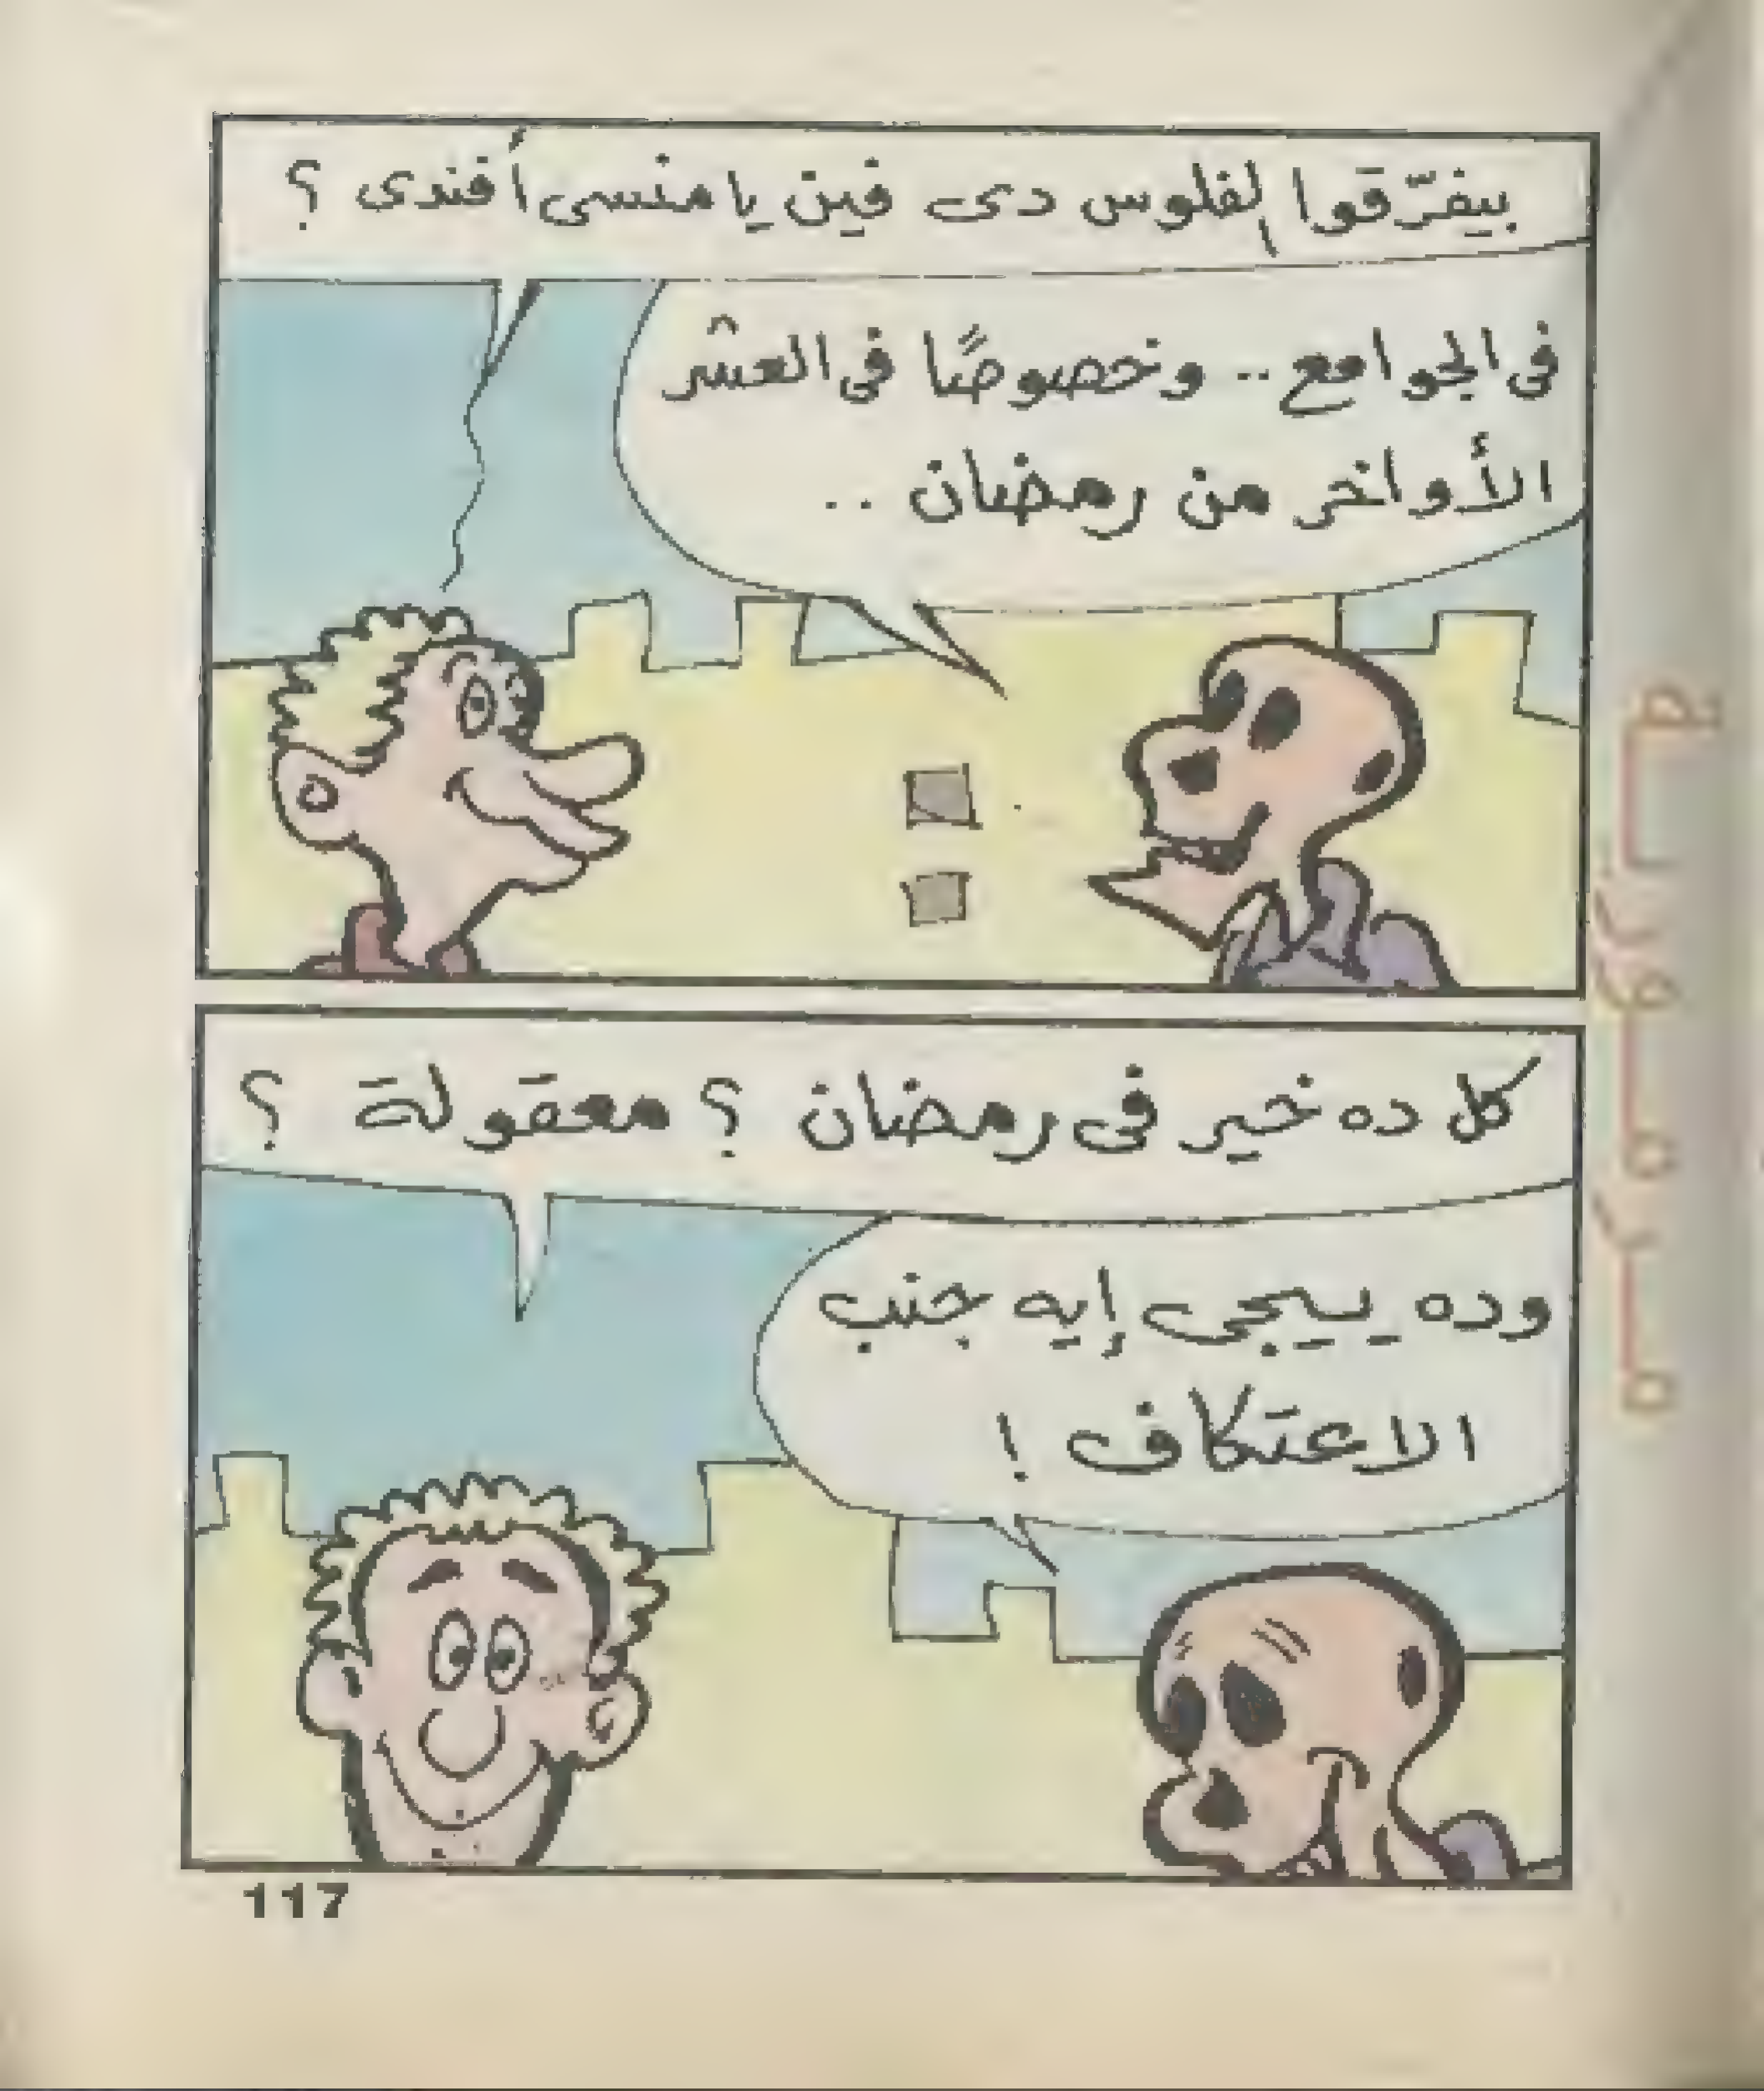 بيفرّقوا الفلوس دى فين يا منسى أفندى ؟
فى الجوامع .. وخصوصًا فى العشر
الأواخر من رمضان ..
كل ده خير فى رمضان ؟ معقولة ؟
وده ييجى إيه جنب
الاعتكاف !
117